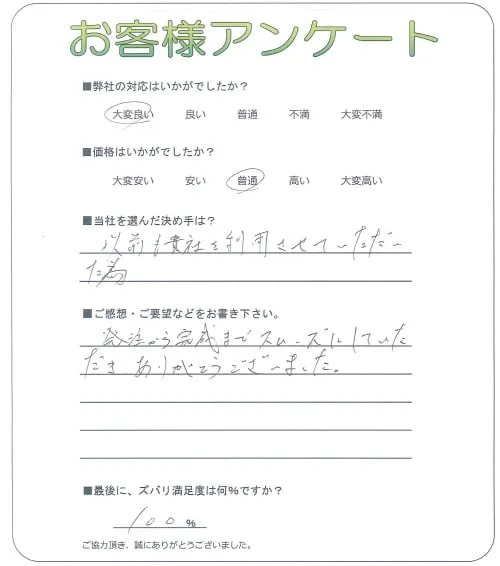 お客様アンケート
■弊社の対応はいかがでしたか？
大変良い 良い 普通 不満 大変不満
■価格はいかがでしたか？
大変安い 安い 普通 高い 大変高い
■当社を選んだ決め手は？
以前も貴社を利用させていただい
た為
■ご感想・ご要望などをお書き下さい。
発注から完成までスムーズにしていた
だきありがとうございました。
■最後に、ズバリ満足度は何％ですか？
100％
ご協力頂き、誠にありがとうございました。